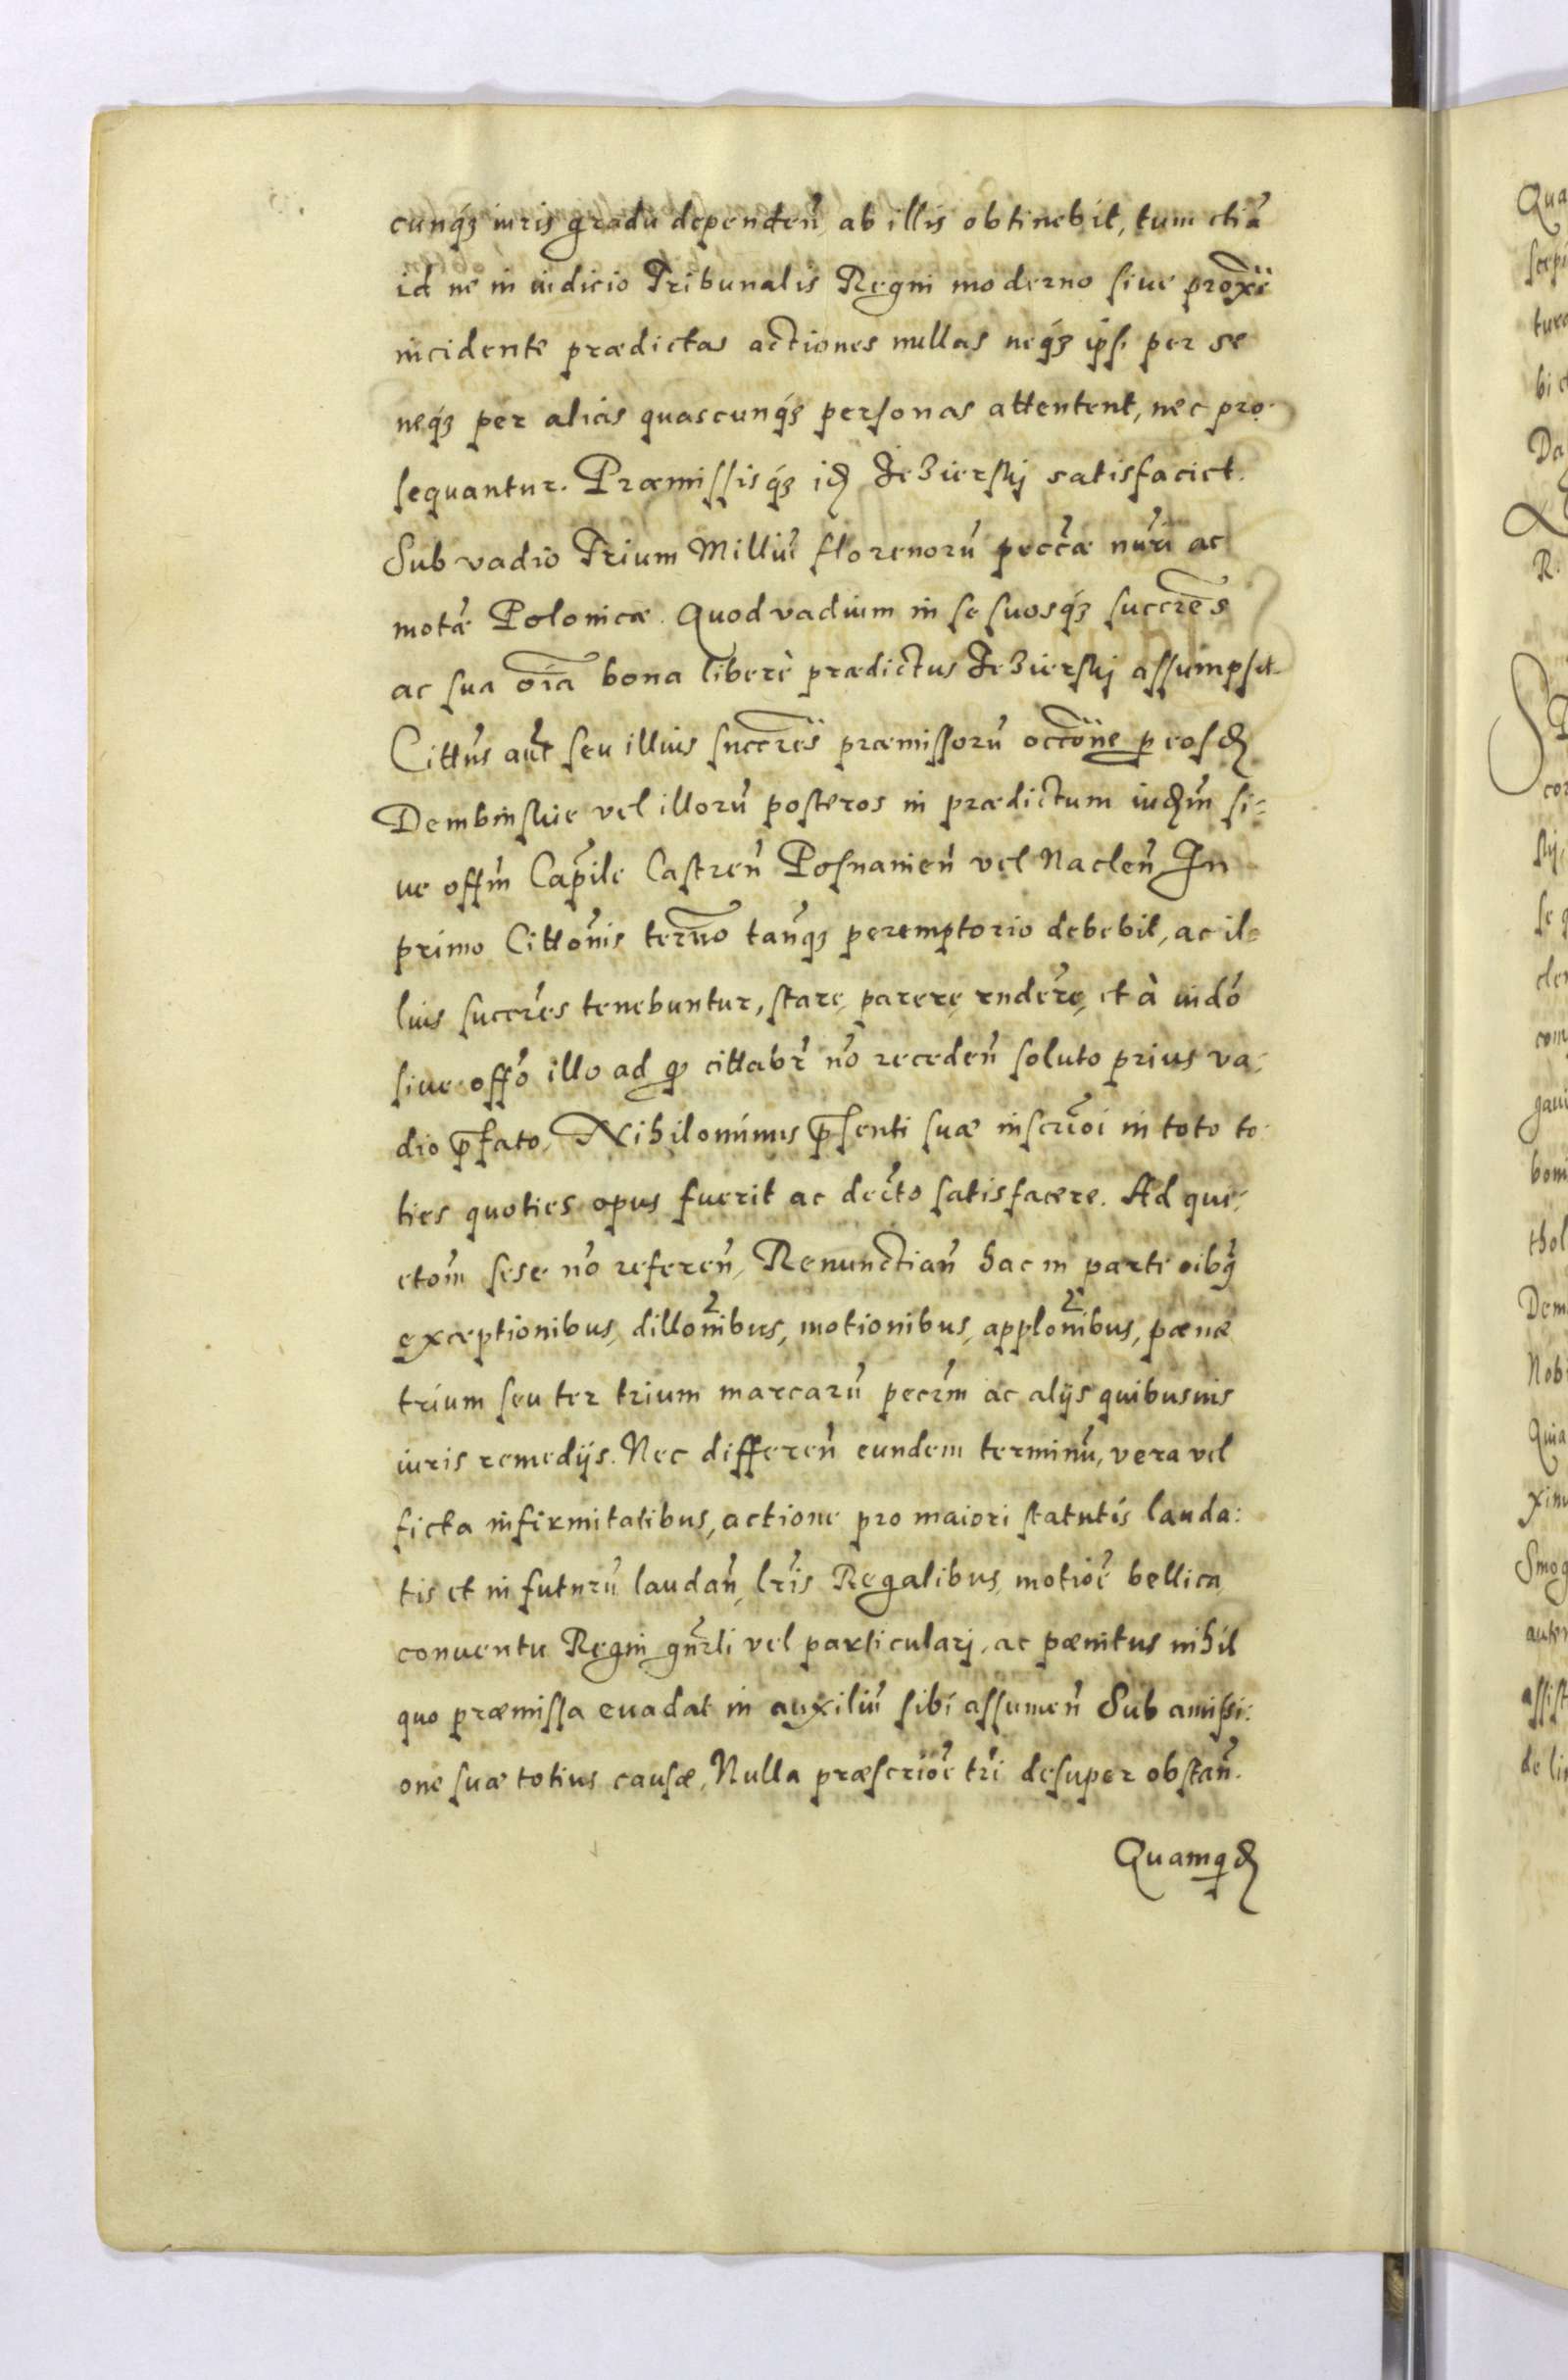 cunq́ꝫ iuris gradu dependeñ, ab illis obtinebit, tum etiã
id ne in iudicio Tribunalis Regni moderno siue proxĩe
incidente prædictas actiones nullas neq́ꝫ ipsi per se
neq́ꝫ per alias quascunq́ꝫ personas attentent, nec pro-
sequantur. Præmissisq́ꝫ id Jezierskj satisfaciet.
Sub vadio Trium Milliũ florenorũ peccæ nũri ac
motæ Polonicæ. Quod vadium in se suosq́ꝫ succr̃es
ac sua oĩa bona liberè prædictus Jezierskj assumpsit.
Cittũs aũt seu illius succr̃es præmissorũ occõne ꝑ eosd
Dembinskie vel illorũ posteros in prædictum iudm̃ si=
ue offm̃ Capĩle Castreñ Posnanieñ vel Nacleñ In
primo Cittõnis term̃o tanq̃ꝫ peremptorio debebit, ac il=
lius succr̃es tenebuntur, stare, parere, rndẽre, et à iudõ
siue offõ illo ad q̃ cittabr̃ nõ recedeñ soluto prius va-
dio p̃fato, Nihilominus p̃senti suæ inscrĩoi in toto to-
ties quoties opus fuerit ac dect̃o satisfacere. Ad qui-
etom̃ sese nõ refereñ, Renunctiañ hac in parte oibꝫ
exceptionibus, dillom̃ibus, motionibus, applom̃ibus, pænæ
trium seu ter trium marcarũ pecrm̃ ac alijs quibusuis
iuris remedijs. Nec differeñ eundem terminũ, vera vel
ficta infirmitatibus, actione pro maiori statutis lauda-
tis et in futurũ laudañ, lr̃is Regalibus, motiõe bellica
conuentu Regni gnr̃li vel particularj, ac pænitus nihil
quo præmissa euadat in auxiliũ sibi assumeñ Sub amissi-
one suæ totius causæ, Nulla præscriõe tr̃i desuper obstañ.
Quamqd